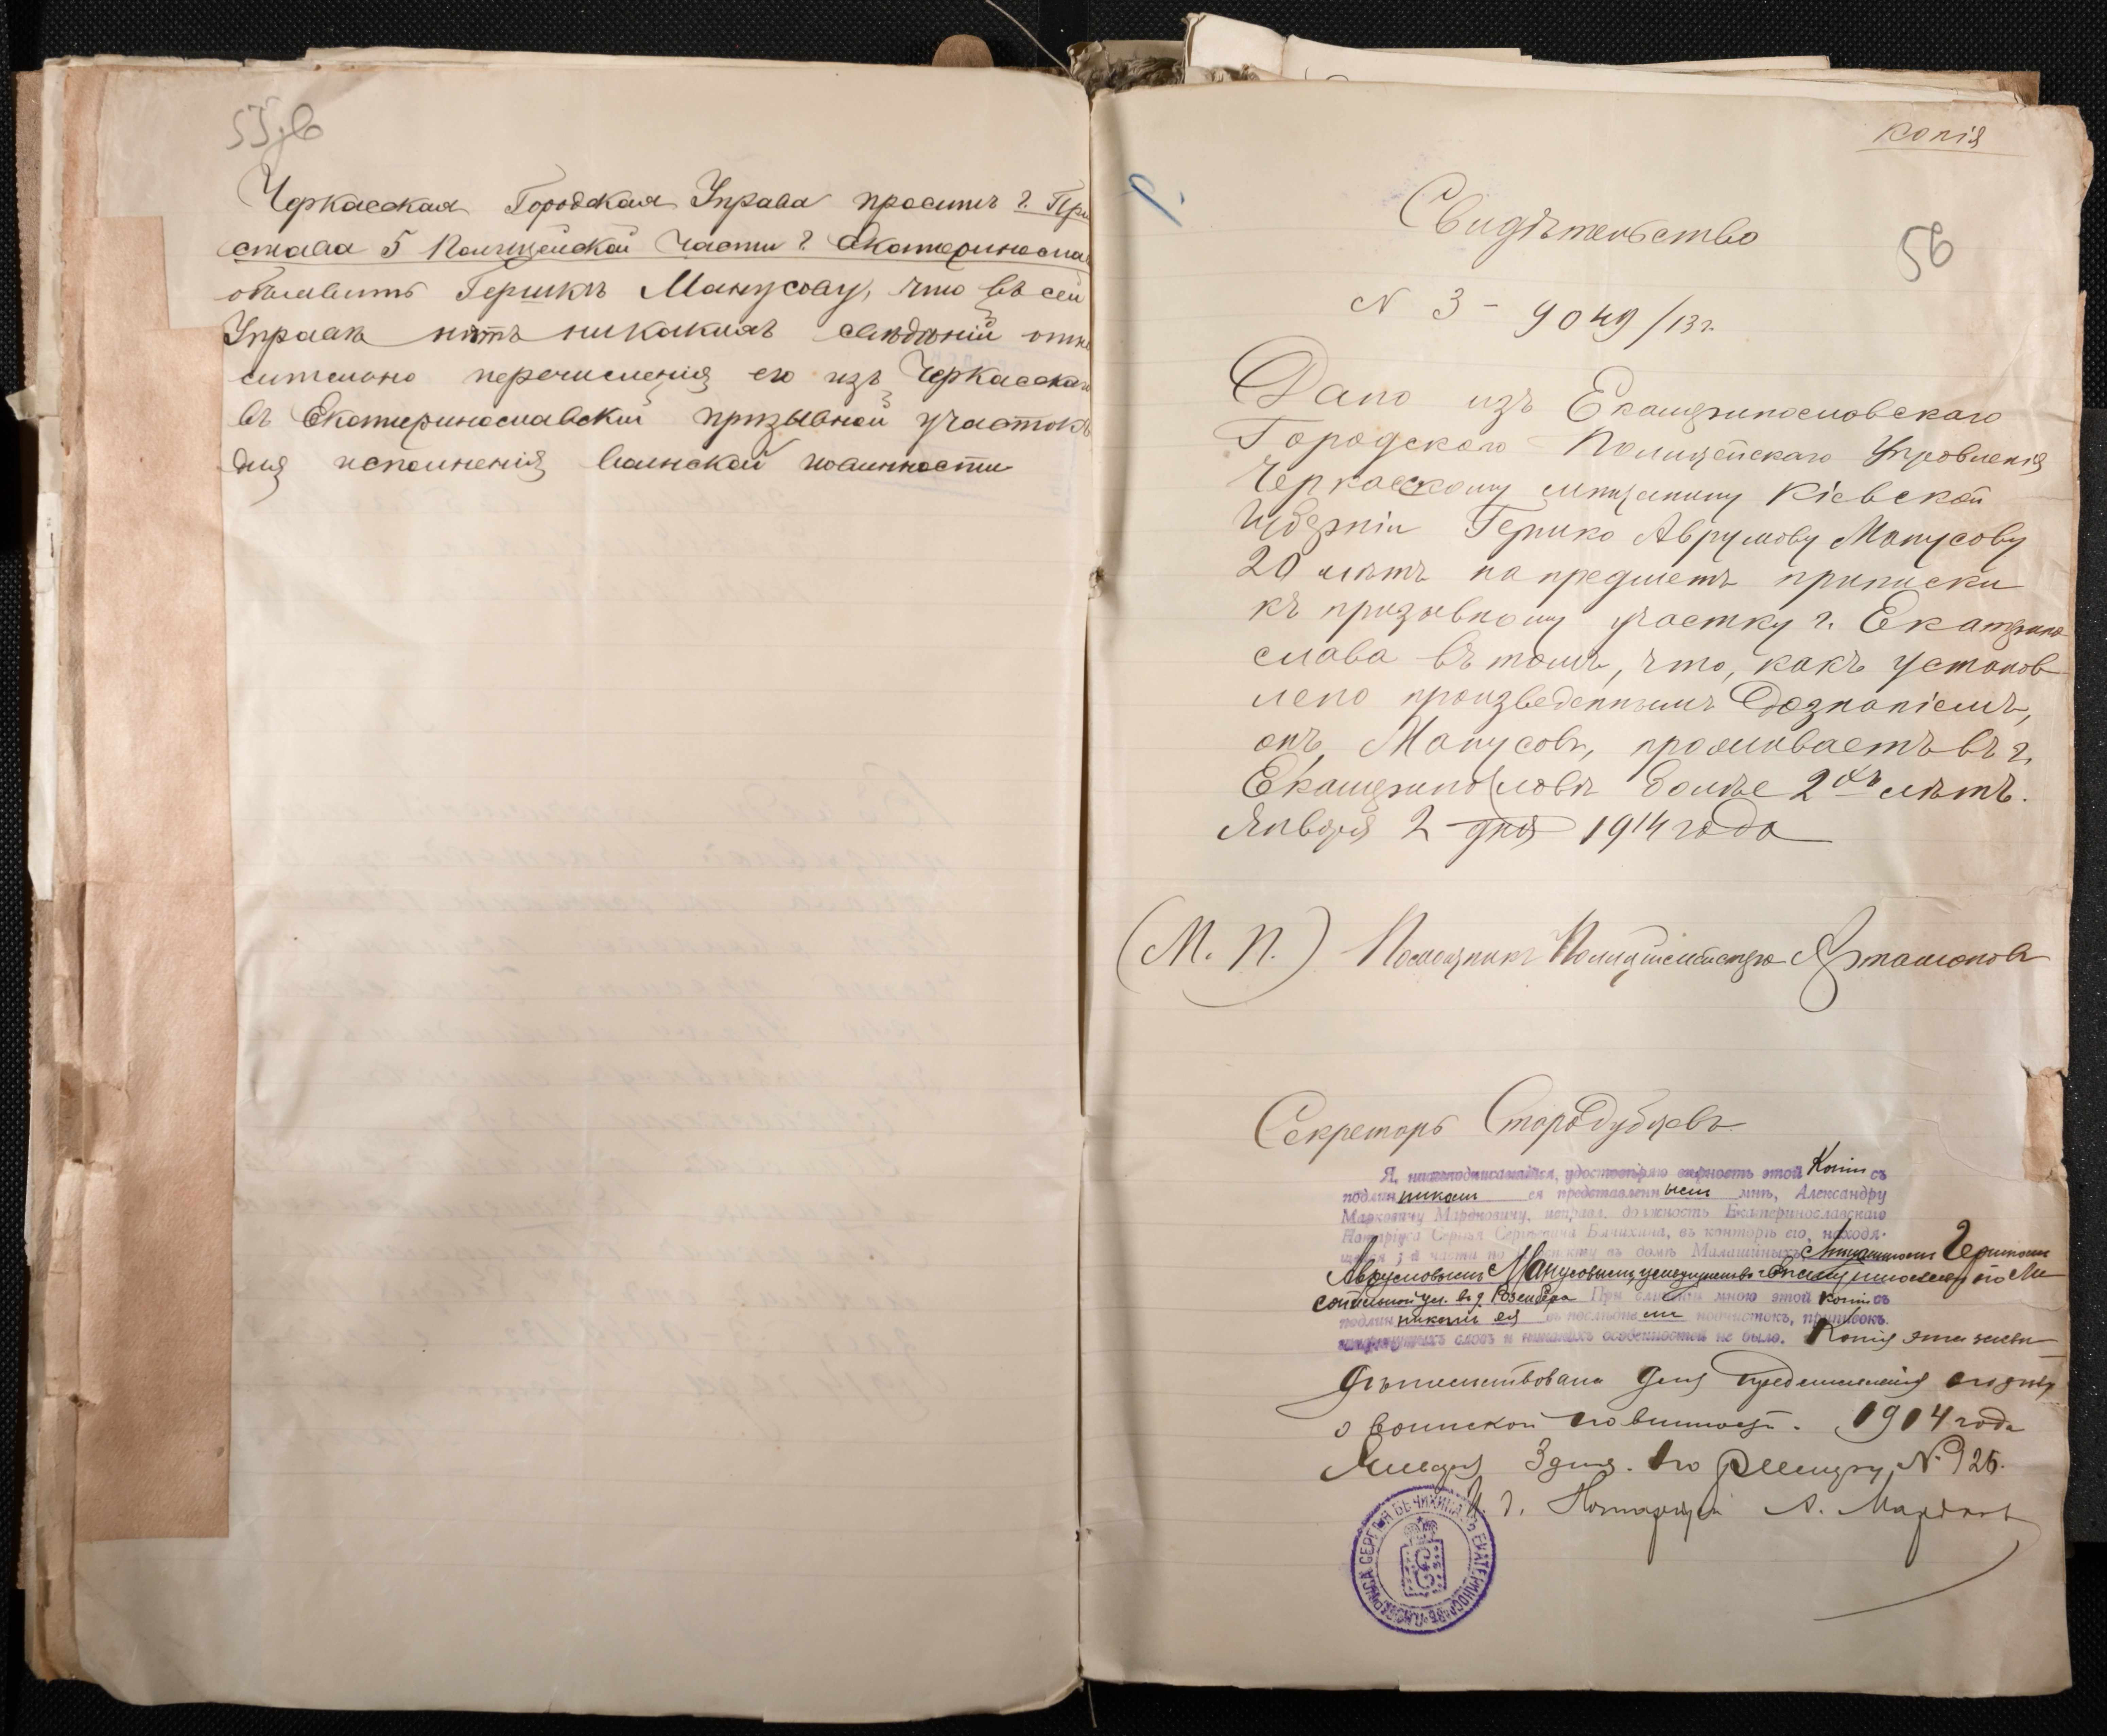 55 об
Черкасская Городская Управа проситъ г. При
става 5 Полицейской части г. Екатериносла
объявить Гершкѣ Манусову, что въ сей
Управѣ нѣтъ никакихъ свѣдѣній отно
сительно перечисленія его изъ Черкасскаго
въ Екатеринославскій призывной участокъ
для исполненія воинской повинности
копія
56
Свидѣтельство
N 3 - 9049/13 г.
Дано изъ Екатеринославскаго
Городского Полицейскаго Управленія
Черкасскому мѣщанину Кіевской
губерніи Гершко Аврумову Манусову
20 лѣтъ на предметъ приписки
къ призывному участку г. Екатерино
слава въ томъ, что, какъ установ
лено произведеннымъ дознаніемъ,
онъ, Манусовъ, проживаетъ въ г.
Екатеринославѣ болѣе 2хъ лѣтъ.
Января 2 дня 1914 года
(М. П.) Помощникъ Полиціймейстера Артамоновъ
Секретарь Стародубцевъ
Я, нижеподписавшійся, удостовѣряю вѣрность этой Копіи съ
подлинникомъ ея представленнымъ мнѣ, Александру
Марковичу Марковичу, исправл. должность Екатеринославскаго
Нотаріуса Сергѣя Сергѣевича Бѣчихина, въ конторѣ его, находя-
щейся 3 й части по проспекту въ домѣ Милашиныхъ мѣщаниномъ Гершкомъ
Аврумовымъ Манусовымъ,
При сличеніи мною этой копіи съ
подлинникомъ ея въ послѣднемъ подчистокъ, приписокъ
зачеркнутыхъ словъ и никакихъ особенностей не было. Копія эта засви-
дѣтельствована для предъявленія
о воинской повинности. 1914 года
Января 3 дня. По реестру N. 126.
И. д. Нотаріуса А. Марковъ
НОТАРІУСА СЕРГѢЯ БѢЧИХИНА ВЪ ЕКАТЕРИНОСЛАВѢ